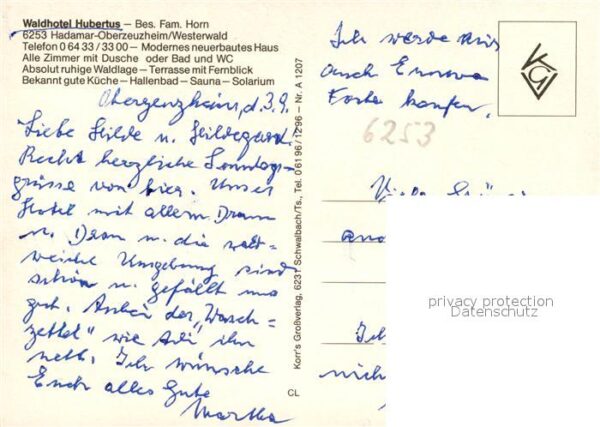 Waldhotel Hubertus – Bes. Fam. Horn
6253 Hadamar-Oberzeuzheim/Westerwald
Telefon 0 64 33 / 33 00 – Modernes neuerbautes Haus
Alle Zimmer mit Dusche oder Bad und WC
Absolut ruhige Waldlage – Terrasse mit Fernblick
Bekannt gute Küche – Hallenbad – Sauna – Solarium
d. 3.9.
Liebe Hilde u. Hildegard.
Recht herzliche Sonntags-
grüsse von hier. Unser
Hotel mit allem Dram
u. Dran u. die
Umgebung sind
schön u. gefällt uns
gut. Anbei der "Wasch-
zettel" wie Adi ihn
nett. Ich wünsche
Euch alles Gute
Martha
Ich werde mir
auch
Karte kaufen.
6253
Viele
Ich
nich
Korr's Großverlag, 6231 Schwalbach/Ts., Tel. 0 61 96 / 12 96 – Nr. A 1207
CL
KGV
privacy protection
Datenschutz